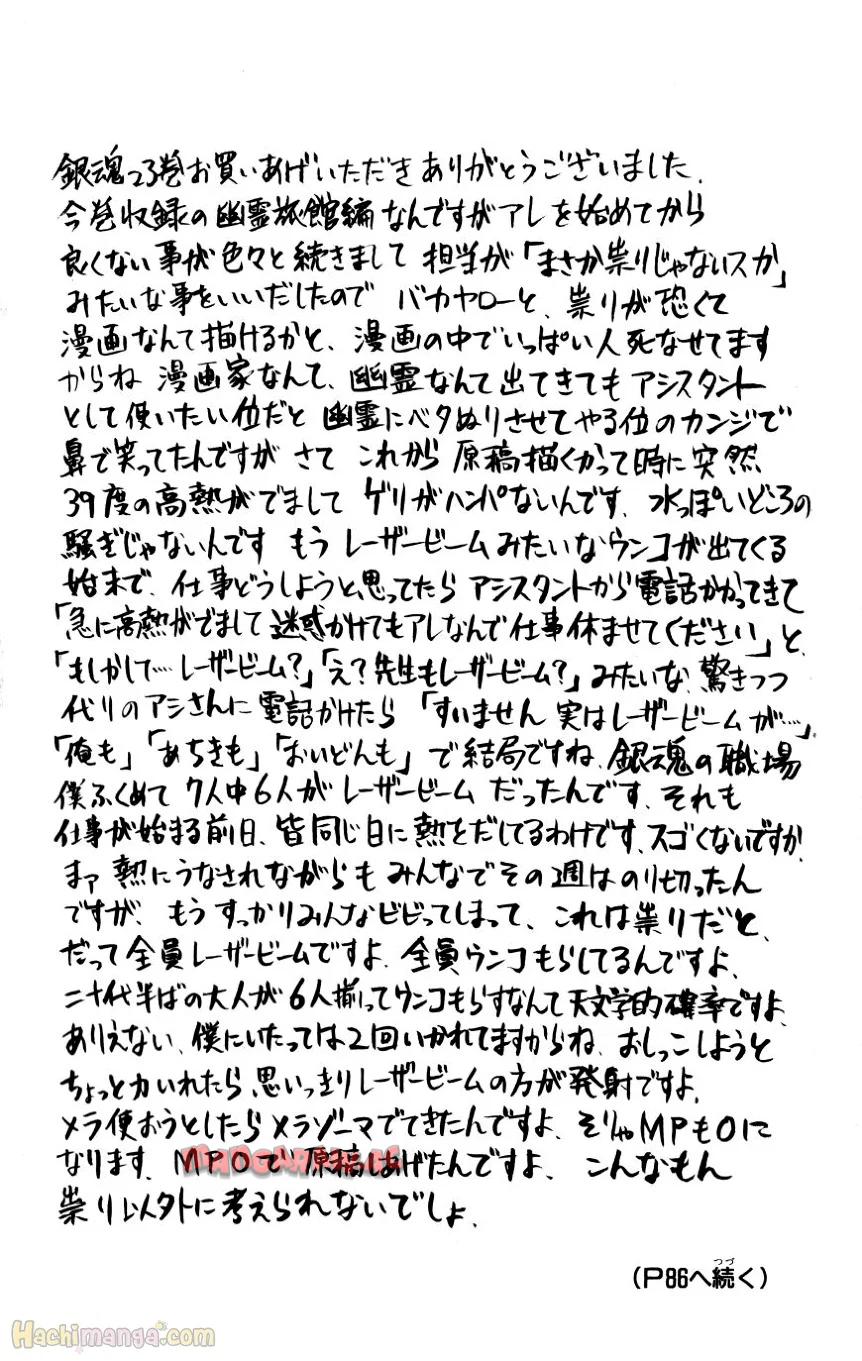 銀魂23巻お買いあげいただきありがとうございました.
今巻収録の幽霊旅館編なんですがアレを始めてから
良くない事が色々と続きまして 担当が「まさか祟りじゃないスか」
みたいな事をいいだしたので バカヤローと、祟りが恐くて
漫画なんて描けるかと、漫画の中でいっぱい人死なせてます
からね 漫画家なんて、幽霊なんて出てきてもアシスタント
として使いたい位だと 幽霊にベタぬりさせてやる位のカンジで
鼻で笑ってたんですが さて これから 原稿描くかって時に突然
39度の高熱がでまして ゲリがハンパないんです、水っぽいどころの
騒ぎじゃないんです もう レーザービームみたいなウンコが出てくる
始末で、仕事どうしようと思ってたら アシスタントから電話かかってきて
「急に高熱がでまして迷惑かけてもアレなんで仕事休ませてください」と、
「もしかして…レーザービーム?」「え?先生もレーザービーム?」みたいな、驚きつつ
代りのアシさんに電話かけたら「すいません 実はレーザービームが…」
「俺も」「あちきも」「おいどんも」で結局ですね、銀魂の職場
僕ふくめて 7人中6人が レーザービーム だったんです、それも
仕事が始まる前日、皆同じ日に熱をだしてるわけです、スゴくないですか、
まァ 熱にうなされながらも みんなでその週はのり切ったん
ですが、もう すっかりみんなビビってしまって、これは祟りだと、
だって全員レーザービームですよ、全員ウンコもらしてるんですよ、
二十代半ばの大人が6人揃ってウンコもらすなんて天文学的確率ですよ、
ありえない、僕にいたっては2回いかれてますからね、おしっこしようと
ちょっと力いれたら、思いっきりレーザービームの方が発射ですよ、
メラ使おうとしたらメラゾーマでてきたんですよ、そりゃMPも0に
なります、MP0で原稿あげたんですよ、こんなもん
祟り以外に考えられないでしょ、
(P86へ続く)
つづ
Hachimanga.com